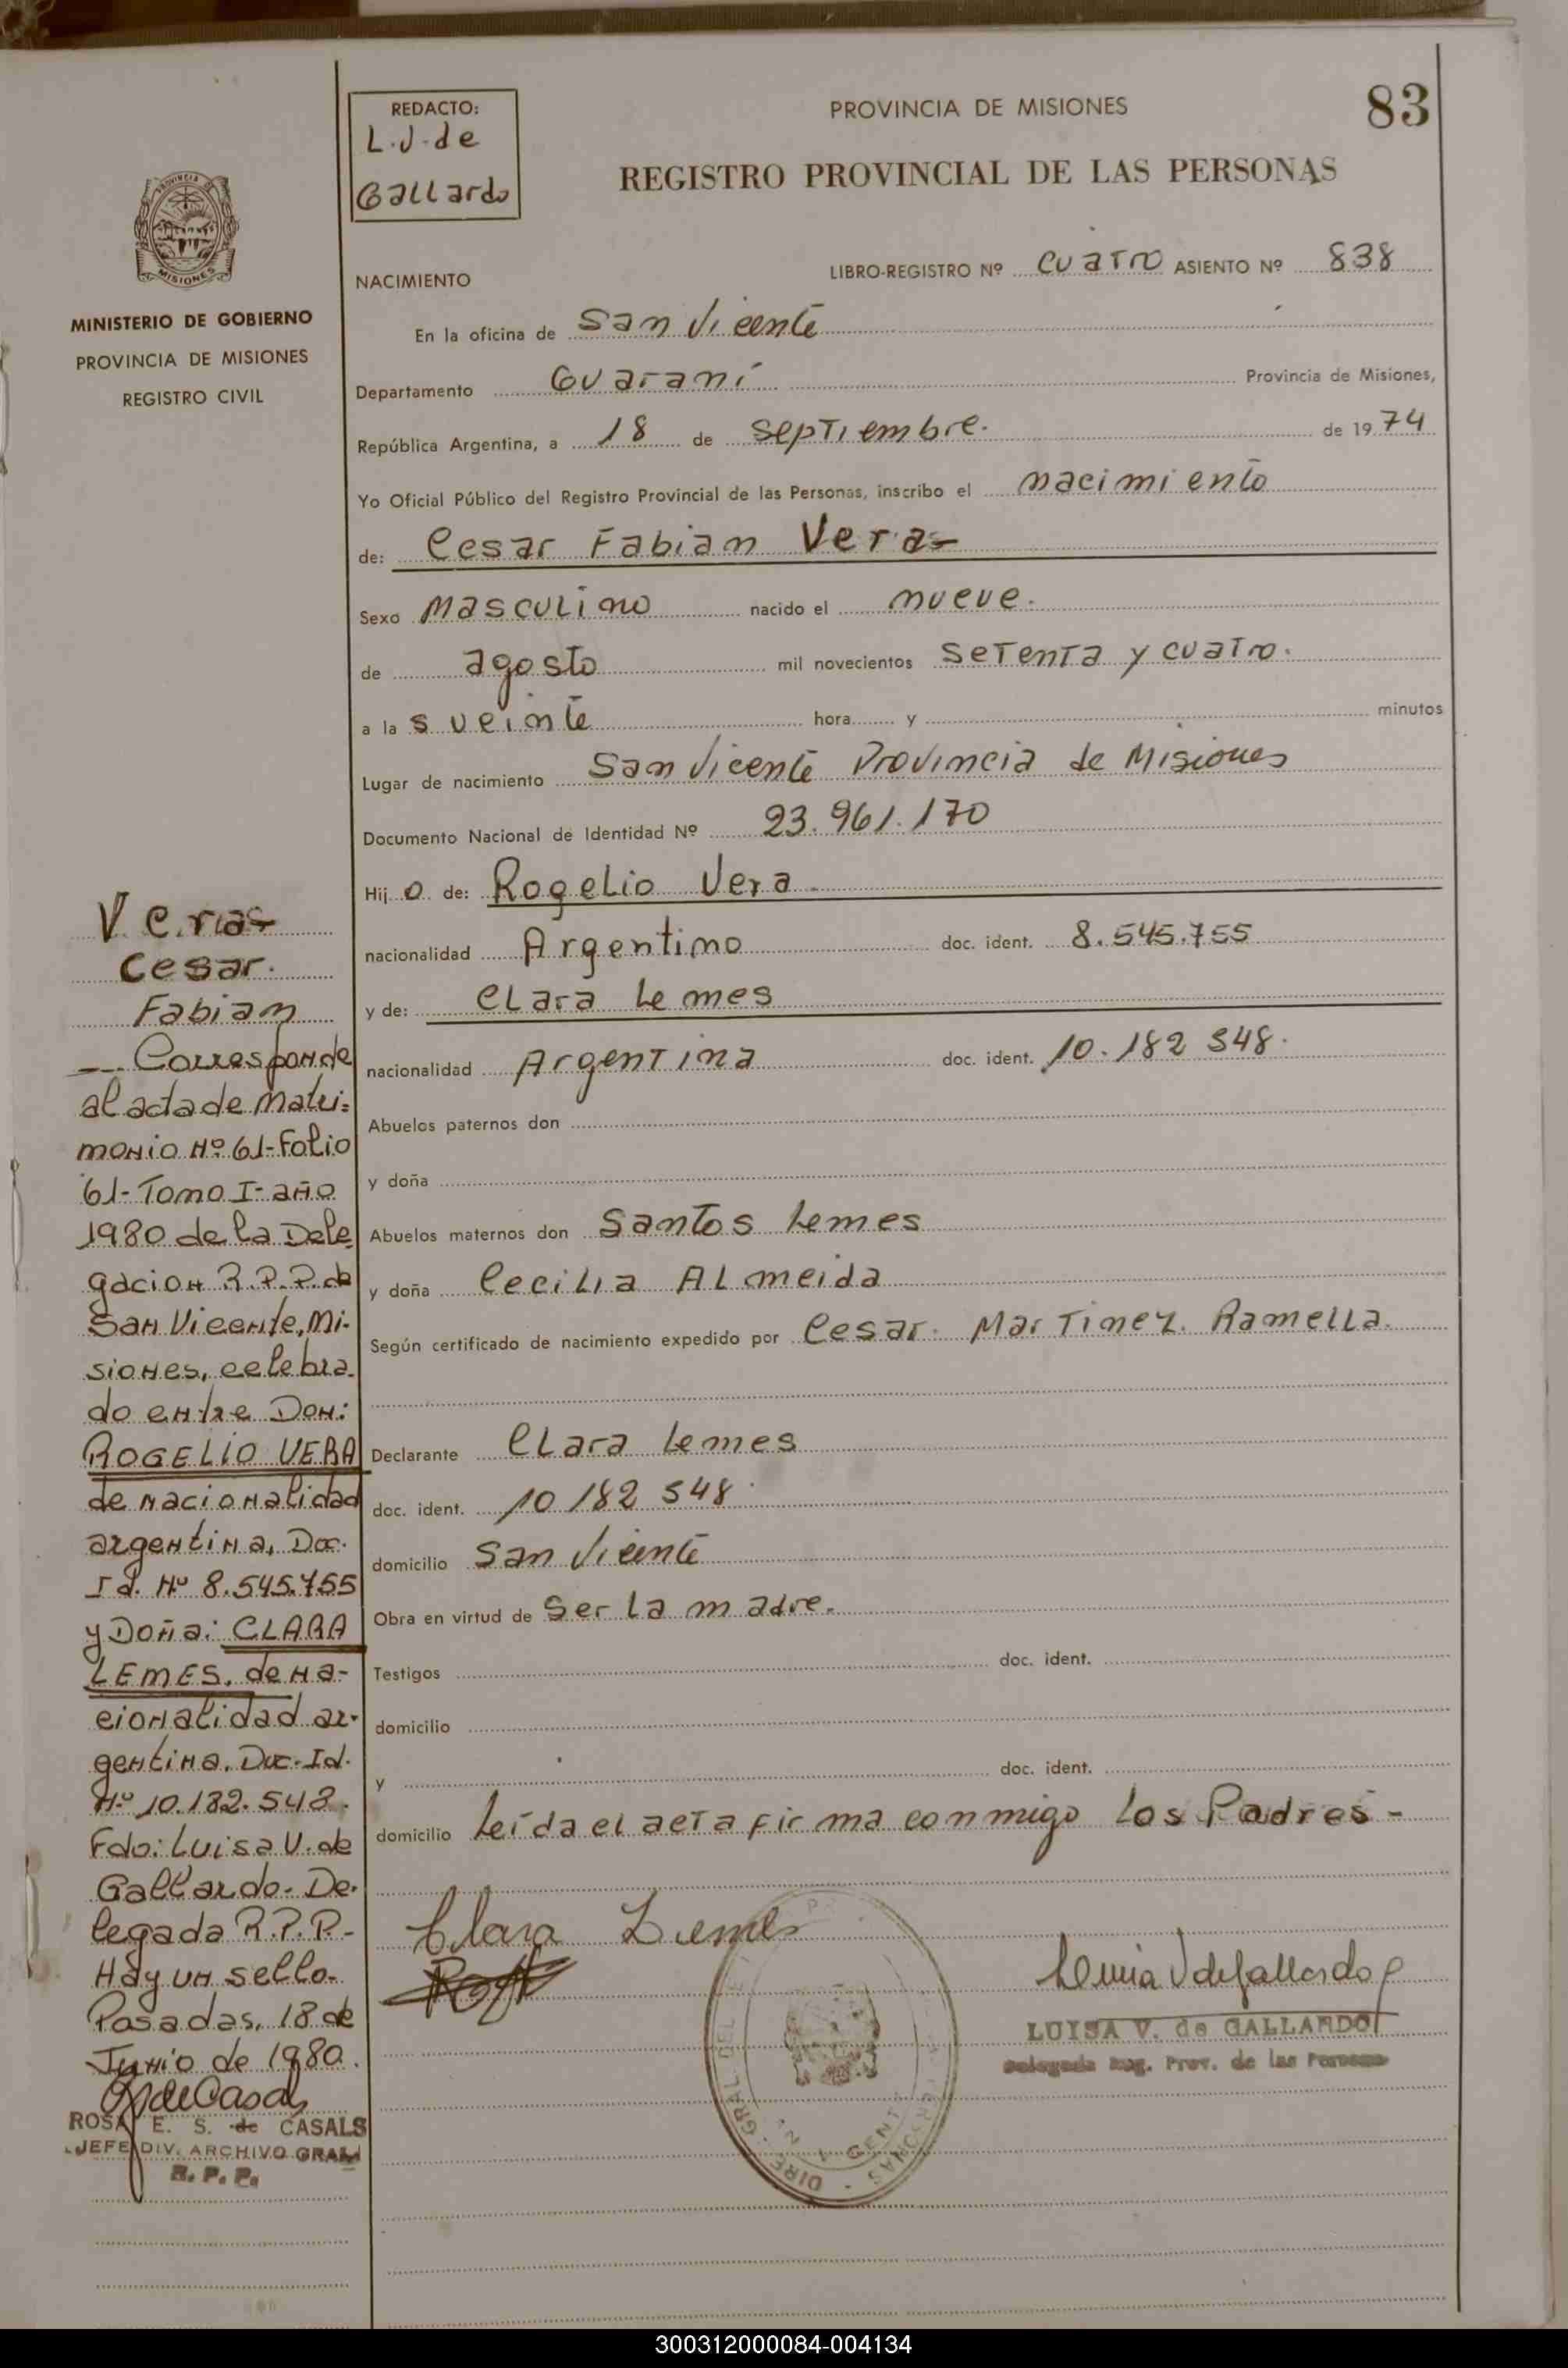 REDACTO:
L.J. de
Gallardo
PROVINCIA DE MISIONES
83
REGISTRO PROVINCIAL DE LAS PERSONAS
PROVINCIA DE
MISIONES
MINISTERIO DE GOBIERNO
PROVINCIA DE MISIONES
REGISTRO CIVIL
NACIMIENTO
LIBRO-REGISTRO Nº cuatro ASIENTO Nº 838
En la oficina de San Vicente
Departamento Guaraní Provincia de Misiones,
República Argentina, a 18 de septiembre. de 1974
Yo Oficial Público del Registro Provincial de las Personas, inscribo el nacimiento
de: Cesar Fabian Vera-
Sexo Masculino nacido el nueve.
de agosto mil novecientos setenta y cuatro.
a las veinte hora y minutos
Lugar de nacimiento San Vicente Provincia de Misiones
Documento Nacional de Identidad Nº 23.961.170
Hijo de: Rogelio Vera.
nacionalidad Argentino doc. ident. 8.545.755
y de: Clara Lemes
nacionalidad Argentina doc. ident. 10.182 548.
Abuelos paternos don
y doña
Abuelos maternos don Santos Lemes
y doña Cecilia Almeida
Según certificado de nacimiento expedido por Cesar. Martinez. Ramella.
Declarante Clara Lemes
doc. ident. 10 182 548
domicilio San Vicente
Obra en virtud de Ser la madre.
Testigos doc. ident.
domicilio
y doc. ident.
domicilio Leída el acta firma conmigo los Padres-
Clara Lemes
Luisa V de Gallardo
LUISA V. de GALLARDO
Delegada Reg. Prov. de las Personas
Vera-
Cesar.
Fabian
-- Corresponde
al acta de Matri=
monio Nº 61-Folio
61-Tomo I-año
1980 de la Dele
gacion R.P.P. de
San Vicente, Mi-
siones, celebra-
do entre Don:
ROGELIO VERA
de nacionalidad
argentina, Doc.
Id. Nº 8.545.755
y Doña: CLARA
LEMES, de na-
cionalidad ar-
gentina, Doc. Id.
Nº 10.182.548.
Fdo: Luisa V. de
Gallardo-De-
legada R.P.P.-
Hay un sello.
Posadas, 18 de
Junio de 1980.
ROSA E. S. de CASALS
JEFE DIV. ARCHIVO GRAL
R. P. P.
300312000084-004134